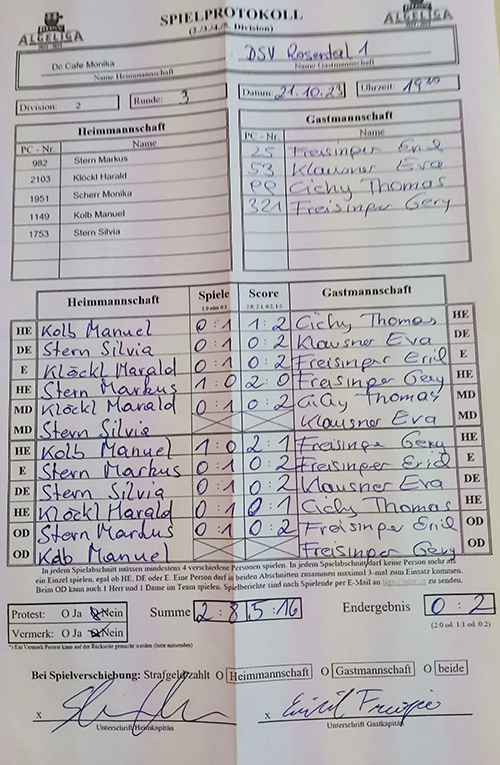 ALGELIGA SPIELPROTOKOLL ALGELIGA
(2./3./4./5. Division)
De Cafe Monika DSV Rosental 1
Name Heimmannschaft Name Gastmannschaft
Division: 2 Runde: 3 Datum: 21.10.23 Uhrzeit:
Heimmannschaft Gastmannschaft
PC - Nr. Name PC - Nr. Name
982 Stern Markus 25 Freisinper
2103 Klöckl Harald 53 Klausner Eva
1951 Scherr Monika Cichy Thomas
1149 Kolb Manuel 321 Freisinper Gery
1753 Stern Silvia
Heimmannschaft Spiele Score Gastmannschaft
1:0 oder 0:1 2:0, 2:1, 0:2, 1:2
HE Kolb Manuel 0:1 1:2 Cichy Thomas HE
DE Stern Silvia 0:1 0:2 Klausner Eva DE
E Klöckl Harald 0:1 0:2 Freisinper E
HE Stern Markus 1:0 2:0 Freisinper Gery HE
MD Klöckl Harald 0:1 0:2 Cichy Thomas MD
MD Stern Silvia Klausner Eva MD
HE Kolb Manuel 1:0 2:1 Freisinper Gery HE
E Stern Markus 0:1 0:2 Freisinper E
DE Stern Silvia 0:1 0:2 Klausner Eva DE
HE Klöckl Harald 0:1 Cichy Thomas HE
OD Stern Markus 0:1 0:2 Freisinper OD
OD Kolb Manuel Freisinper Gery OD
In jedem Spielabschnitt müssen mindestens 4 verschiedene Personen spielen. In jedem Spielabschnitt darf keine Person mehr als
ein Einzel spielen, egal ob HE, DE oder E. Eine Person darf in beiden Abschnitten zusammen maximal 3-mal zum Einsatz kommen.
Beim OD kann auch 1 Herr und 1 Dame im Team spielen. Spielberichte sind nach Spielende per E-Mail an zu senden.
Protest: O Ja Nein Summe 2:8 5:16 Endergebnis 0:2
Vermerk: O Ja Nein (2:0 od. 1:1 od. 0:2)
*) Ein Vermerk Protest kann auf der Rückseite gemacht werden (bitte mitsenden)
Bei Spielverschiebung: Strafgeld zahlt O Heimmannschaft O Gastmannschaft O beide
x x
Unterschrift Heimkapitän Unterschrift Gastkapitän